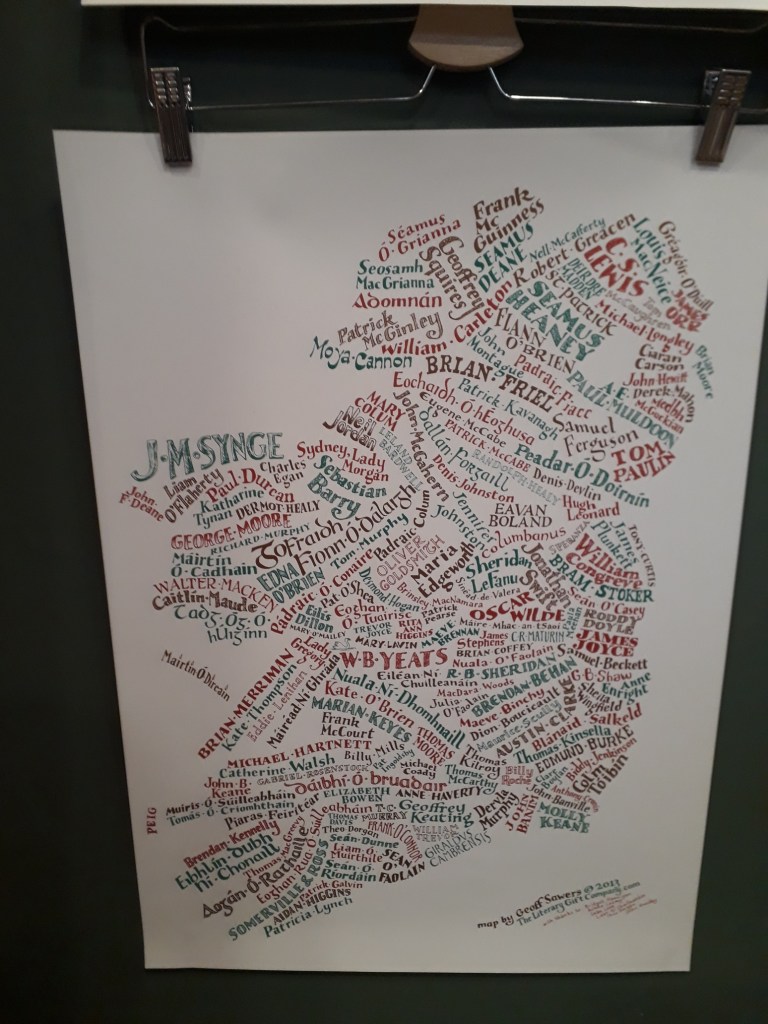 Frank
Mc
Guinness
Séamus
Ó·Grianna
SEAMUS
DEANE
Nell·McCafferty
Robert·Greacen
Louis
MacNeice
Gréagóir·Ó'Dúill
Seosamh
MacGrianna
Geoffrey
Squires
C.S.
LEWIS
JAMES
ORR
Adomnán
ST·PATRICK
SEAMUS
HEANEY
Michael·Longley
Patrick
McGinley
William·Carleton
FLANN
O'BRIEN
Ciaran
Carson
Brian
Moore
Moya·Cannon
John
Montague
BRIAN·FRIEL
Padraic·Fiacc
A·E·
PAUL·MULDOON
John·Hewitt
Derek·Mahon
Medbh
McGuckian
Eochaidh·Ó·hEoghusa
Patrick·Kavanagh
MARY
COLUM
Eugene·McCabe
Samuel
Ferguson
Neil
Jordan
John·McGahern
PATRICK·McCABE
TOM
PAULIN
LELAND
BARDWELL
Dallán·Forgaill
RANDOLPH·HEALY
Peadar·O·Doirnín
J·M·SYNGE
Sydney·Lady
Morgan
Denis·Johnston
Denis·Devlin
Charles
Egan
Sebastian
Barry
John
F·Deane
Liam
O'Flaherty
Paul·Durcan
Katharine
Tynan
DERMOT·HEALY
Jennifer
Johnston
EAVAN
BOLAND
Hugh
Leonard
GEORGE·MOORE
RICHARD·MURPHY
Gofraidh
Fionn·O·Dalaigh
Padraic·Colum
Columbanus
SPERANZA
James
Plunkett
TONY·CURTIS
Máirtín
Ó·Cadhain
EDNA
O'BRIEN
Tom·Murphy
OLIVER
GOLDSMITH
Maria
Edgeworth
Sheridan
LeFanu
Jonathan
Swift
William
Congreve
BRAM·STOKER
WALTER·MACKEN
Caitlín·Maude
Padraic·Ó·Conaire
Pat·O'Shea
Desmond·Hogan
Sinead·de·Valera
Sean·O'Casey
Tadg·Óg·Ó·
hUiginn
Eilís
Dillon
Eoghan
Ó·Tuairisc
Brinsley·MacNamara
Patrick
Pearse
OSCAR·WILDE
RODDY
DOYLE
MARY·O'MALLEY
TREVOR
JOYCE
RITA
ANN
HIGGINS
MAEVE
BRENNAN
Máire·Mhac·an·tSaoi
JAMES
JOYCE
MARY·LAVIN
James
Stephens
C·R·MATURIN
Máirtín·Ó·Direáin
Lady
Gregory
W·B·YEATS
BRIAN·COFFEY
Samuel·Beckett
BRIAN·MERRIMAN
Kate·Thompson
Eddie·Lenihan
Máiréad·Ní·Ghráda
Eiléan·Ní·
Chuilleanáin
Nuala·O'Faolain
R·B·SHERIDAN
G·B·Shaw
Anne
Enright
Nuala·Ní·Dhomhnaill
MacDara·Woods
Julia
O'Faolain
BRENDAN·BEHAN
Sheila
Wingfield
Kate·O'Brien
MARIAN·KEYES
Maeve·Binchy
Dion·Boucicault
Maurice·Scully
AUSTIN·CLARKE
Blánaid·Salkeld
Frank
McCourt
THOMAS
MOORE
Thomas
Kilroy
Thomas·Kinsella
EDMUND·BURKE
MICHAEL·HARTNETT
Billy·Mills
Michael
Coady
Thomas
McCarthy
Billy
Roche
Biddy·Jenkinson
Colm
Tóibín
Catherine·Walsh
GABRIEL·ROSENSTOCK
John·B·
Keane
dáibhí·Ó·bruadair
ANNE·HAVERTY
John·Banville
Muiris·Ó·Súilleabháin
Tomás·Ó·Criomhthain
ELIZABETH
BOWEN
Dervla
Murphy
MOLLY
KEANE
PEIG
Piaras·Feiritear
T·C·
MURRAY
Geoffrey
Keating
Brendan·Kennelly
THOMAS
DAVIS
Theo·Dorgan
FRANK·O'CONNOR
WILLIAM
TREVOR
GIRALDUS
CAMBRENSIS
Eibhlín·Dubh
Ní·Chonaill
Seán·Dunne
Liam·Ó·
Muirthile
SEAN
Ó
FAOLAIN
Aogán·Ó·Rathaille
Eoghan·Rua·Ó·Súil
leabháin
Seán·Ó·
Ríordáin
SOMERVILLE·&·ROSS
Patrick·Galvin
AIDAN·HIGGINS
Patricia·Lynch
map by Geoff Sawers © 2013
The Literary Gift Company.com